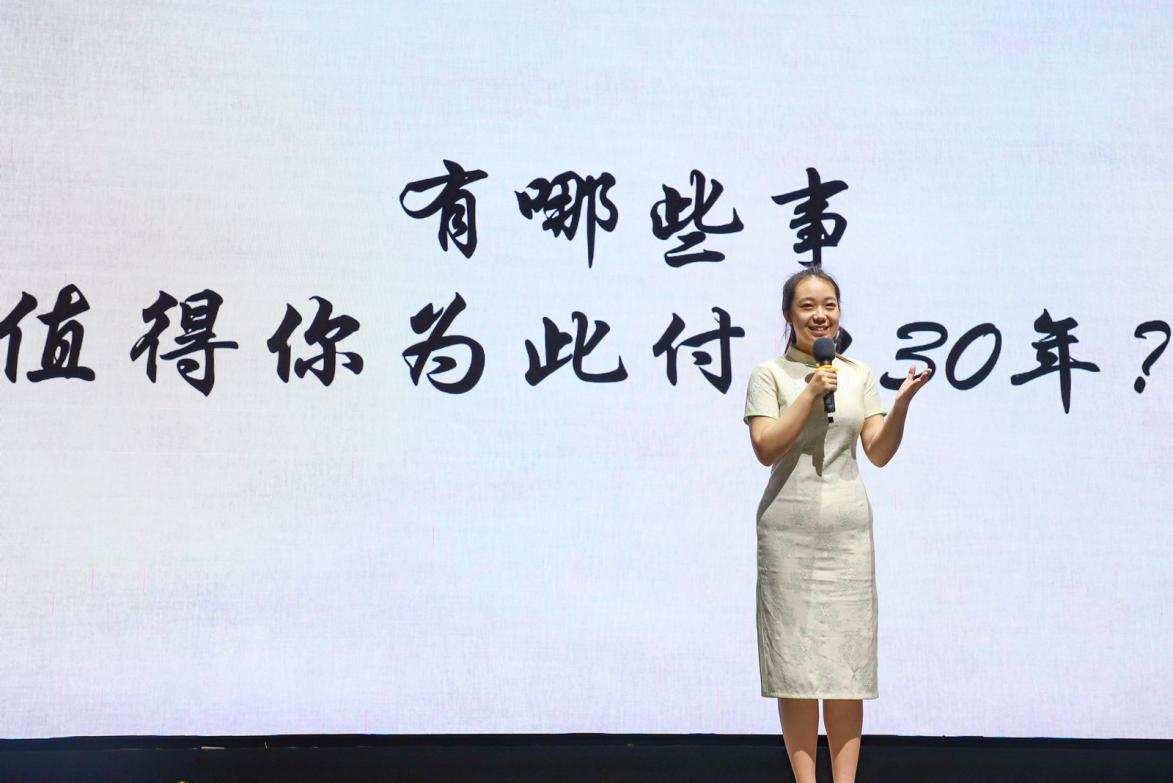 有哪些事
值得你为此付 30年?